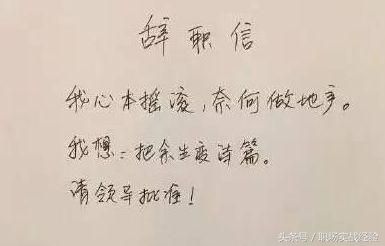 辞职信
我心本摇滚,奈何做地产。
我想:把余生变诗篇。
请领导批准!
头条号/职场实战经验